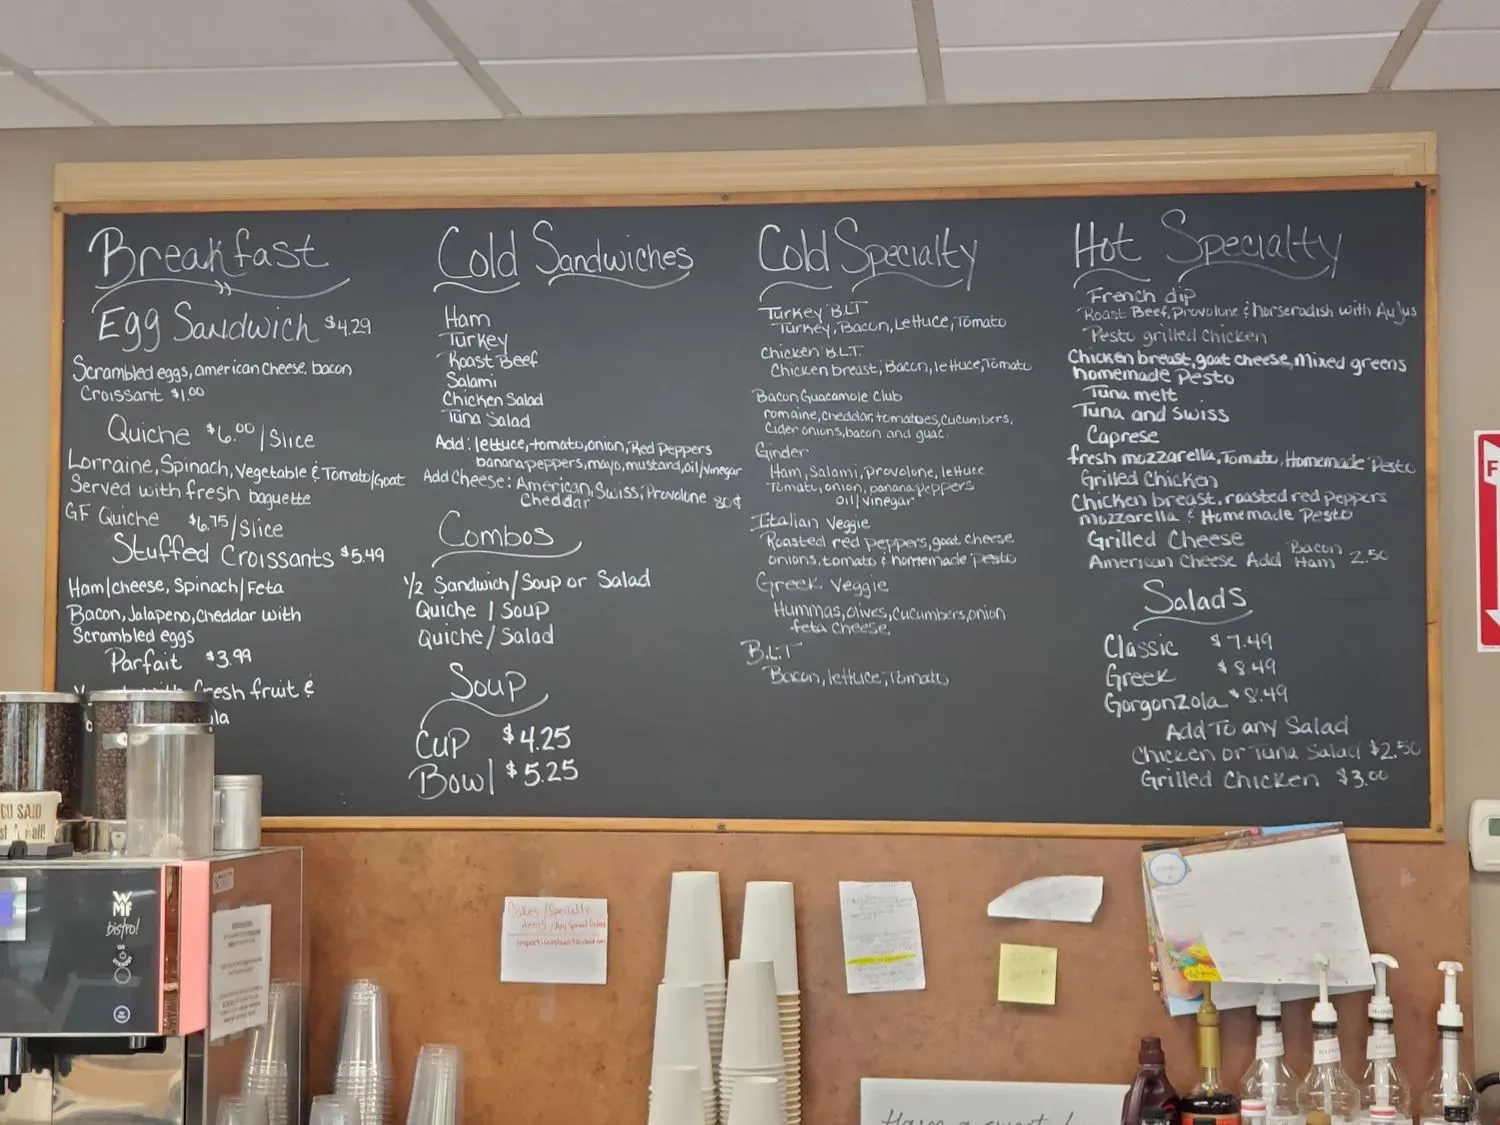 Breakfast
Egg Sandwich $4.29
Scrambled eggs, american cheese, bacon
Croissant $1.00
Quiche $6.00/Slice
Lorraine, Spinach, Vegetable & Tomato/Goat
Served with fresh baguette
GF Quiche $6.75/Slice
Stuffed Croissants $5.49
Ham/cheese, Spinach/Feta
Bacon, Jalapeno, cheddar with
Scrambled eggs
Parfait $3.99
with fresh fruit &
Cold Sandwiches
Ham
Turkey
Roast Beef
Salami
Chicken Salad
Tuna Salad
Add: lettuce, tomato, onion, Red Peppers
banana peppers, mayo, mustard, oil/vinegar
Add Cheese: American, Swiss, Provolone
Cheddar 80¢
Combos
1/2 Sandwich/Soup or Salad
Quiche / Soup
Quiche/Salad
Soup
Cup $4.25
Bowl $5.25
Cold Specialty
Turkey BLT
Turkey, Bacon, Lettuce, Tomato
Chicken B.L.T.
Chicken breast, Bacon, lettuce, Tomato
Bacon Guacamole Club
romaine, cheddar, tomatoes, cucumbers,
Cider onions, bacon and guac.
Ginder
Ham, Salami, Provolone, lettuce
Tomato, onion, banana peppers
oil/vinegar
Italian Veggie
Roasted red peppers, goat cheese
onions, tomato & homemade pesto
Greek Veggie
Hummas, olives, cucumbers, onion
feta cheese
B.L.T
Bacon, lettuce, Tomato
Hot Specialty
French dip
Roast Beef, Provolone & horseradish with Au Jus
Pesto grilled Chicken
Chicken breast, goat cheese, Mixed greens
homemade Pesto
Tuna melt
Tuna and Swiss
Caprese
fresh mozzarella, Tomato, Homemade Pesto
Grilled Chicken
Chicken breast, roasted red peppers
mozzarella & Homemade Pesto
Grilled Cheese
American Cheese Add Bacon Ham 2.50
Salads
Classic $7.49
Greek $8.49
Gorgonzola $8.49
Add To any Salad
Chicken or Tuna Salad $2.50
Grilled Chicken $3.00
WMF
bistro!
Cakes/Specialty
items/Any Special
Have a sweet